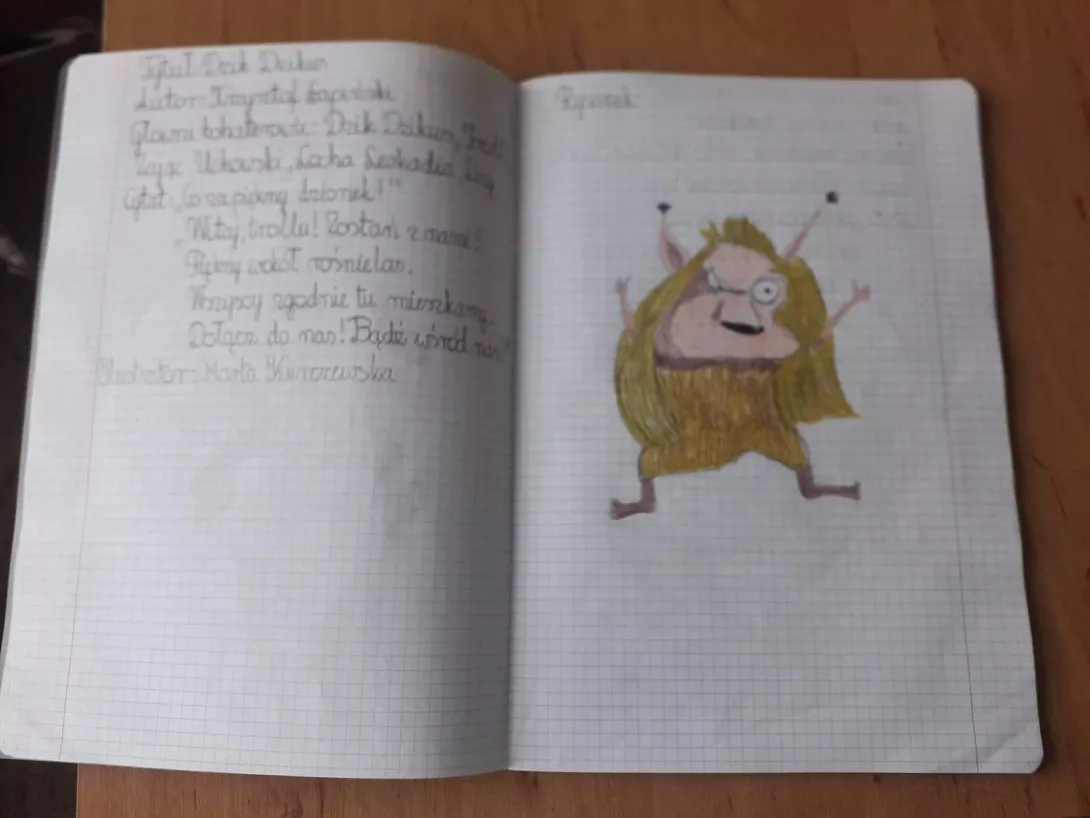 Tytuł: Dzik Dzikus
Autor: Krzysztof Łapiński
Główni bohaterowie: Dzik Dzikus, Troll
Zając Uchowski, Locha Leokadia, Dziś
Cytat „Co za piękny dzionek!"
„Witaj, trollu! Zostań z nami!
Piękny wokół rośnie las.
Wszyscy zgodnie tu mieszkamy.
Dołącz do nas! Bądź wśród nas."
Ilustrator: Marta Kurczewska
Rysunek